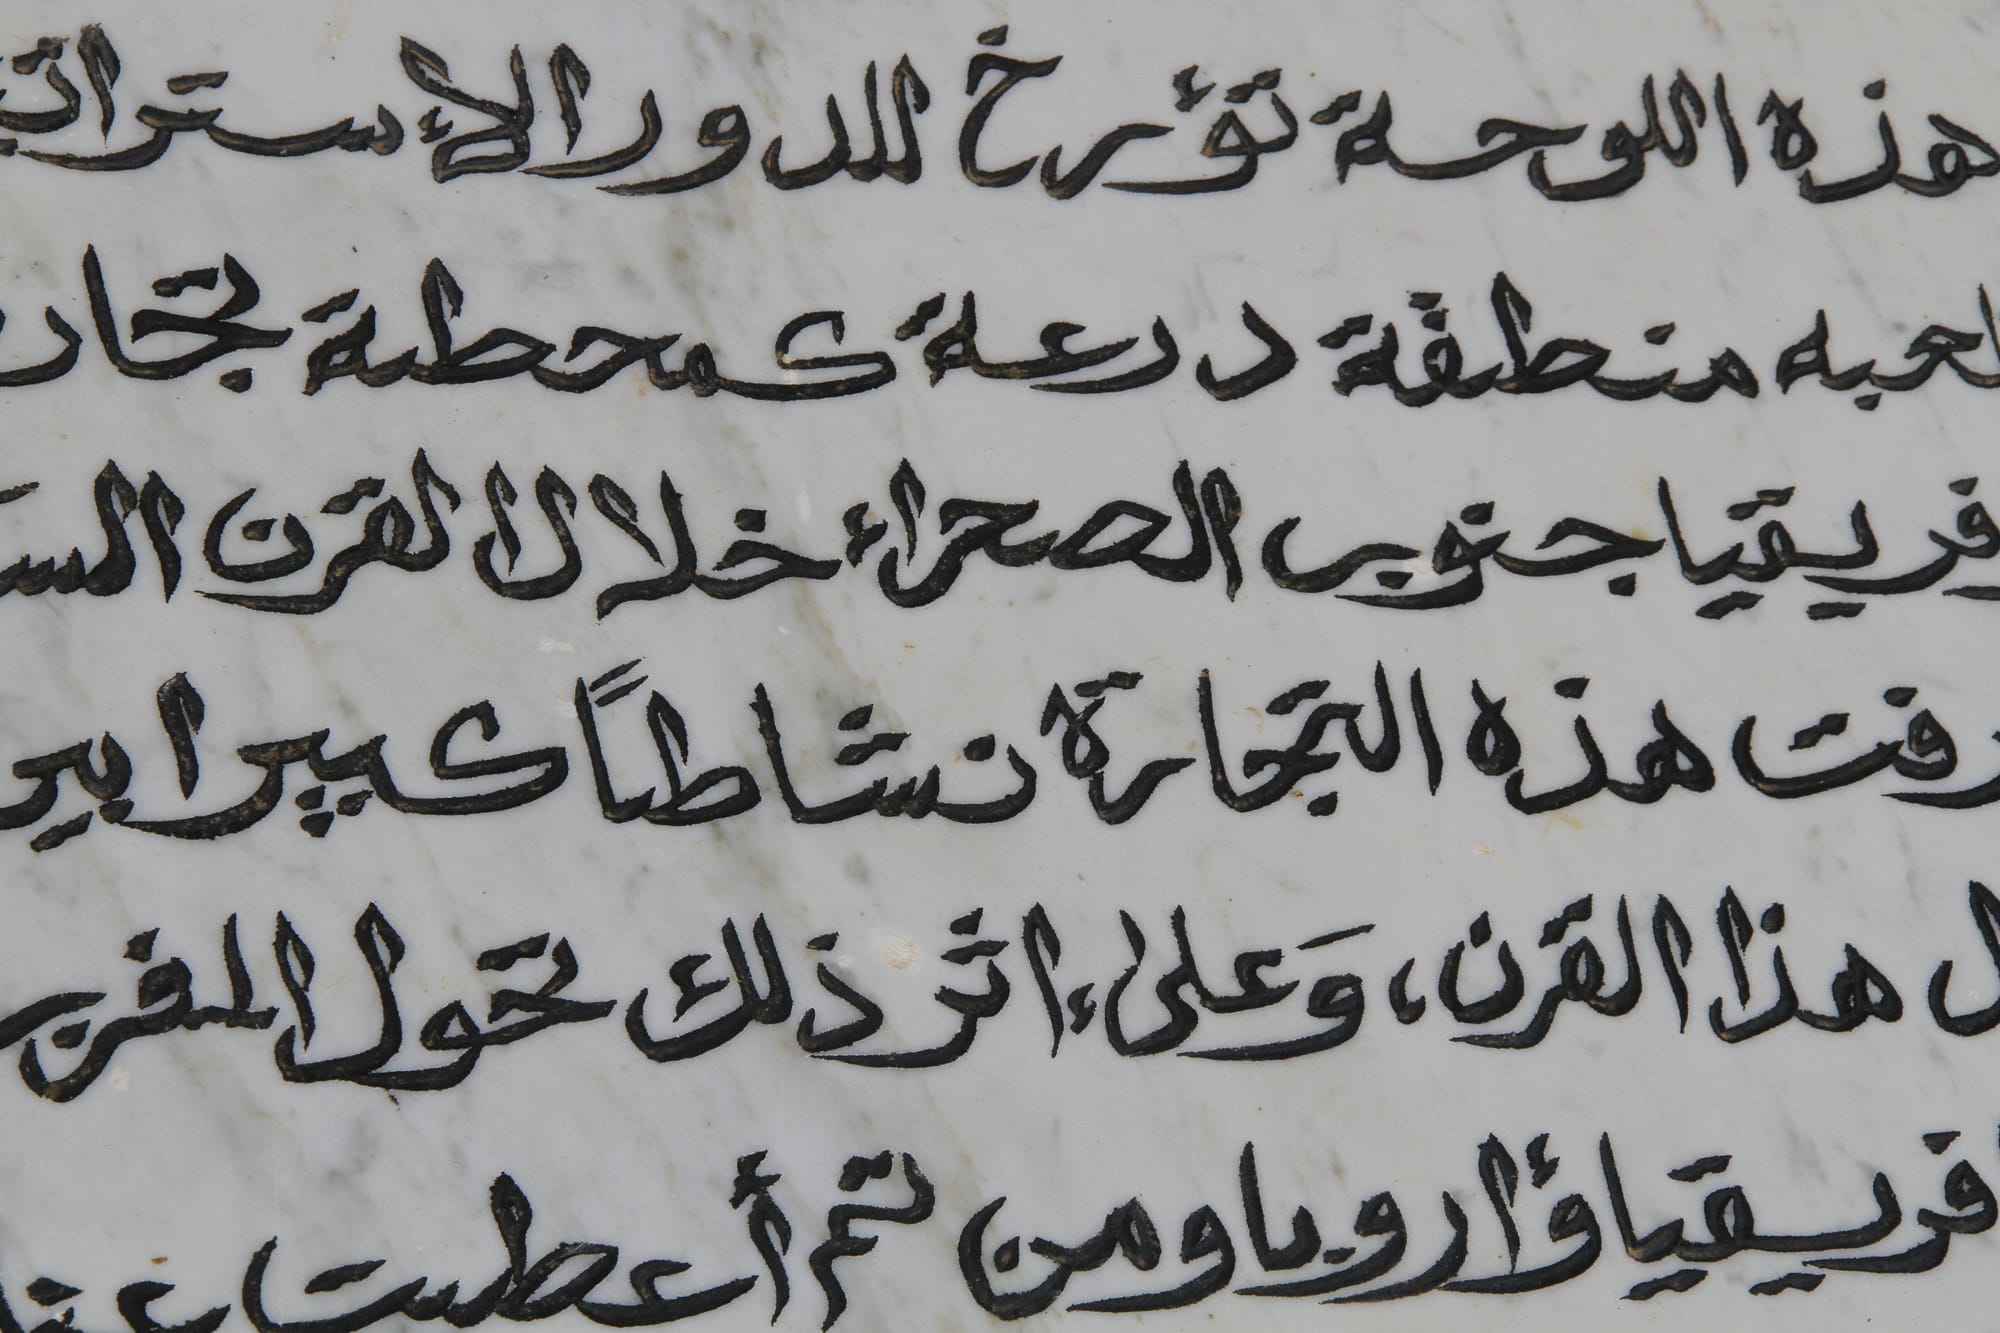 هذه اللوحة تؤرخ للدور الإسترات
لعبه منطقة درعة كمحطة تجار
فريقيا جنوب الصحراء خلال القرن الس
رفت هذه التجارة نشاطاً كبيرا بير
ل هذا القرن، وَعلى إثر ذلك تحول المغرب
فريقيا وأروبا ومن ثم أعطت